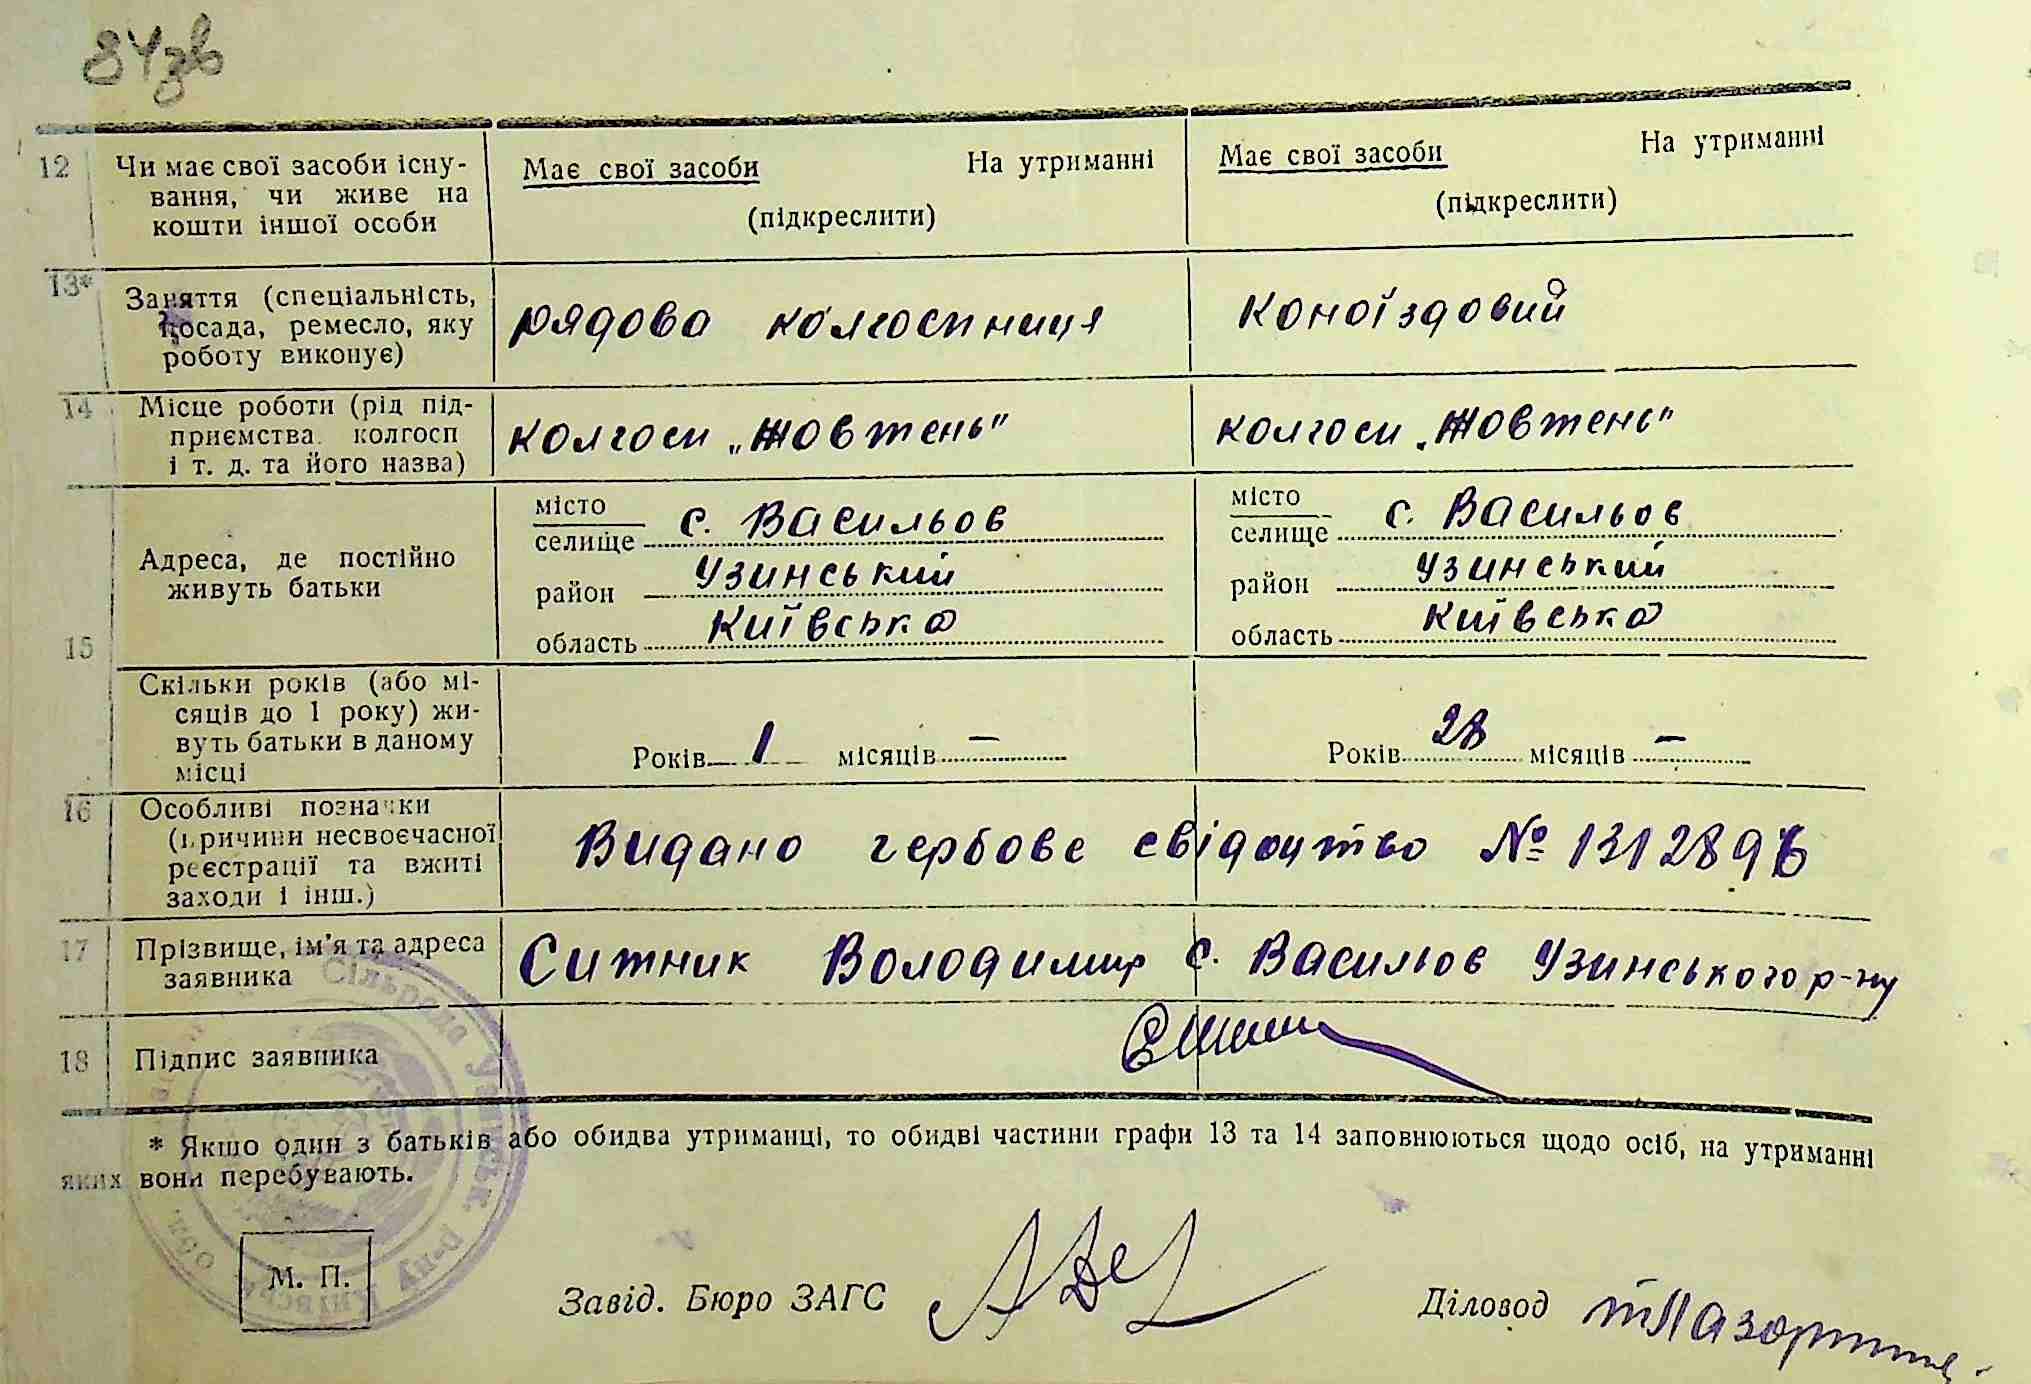 84зв
12 Чи має свої засоби існу- Має свої засоби На утриманні Має свої засоби На утриманні
вання, чи живе на (підкреслити) (підкреслити)
кошти іншої особи
13* Заняття (спеціальність, рядова колгоспниця Коноїздовий
посада, ремесло, яку
роботу виконує)
14 Місце роботи (рід під- колгосп „Жовтень" колгосп „Жовтень"
приємства, колгосп
і т. д. та його назва)
15 Адреса, де постійно
живуть батьки
місто
селище с. Васильов
район Узинський
область Київська
місто
селище с. Васильов
район Узинський
область Київська
Скільки років (або мі-
сяців до 1 року) жи-
вуть батьки в даному
місці
Років 1 місяців — Років 28 місяців —
16 Особливі позначки
(причини несвоєчасної
реєстрації та вжиті
заходи і інш.)
Видано гербове свідоцтво №
17 Прізвище, ім'я та адреса
заявника
Ситник Володимир с. Васильов Узинського р-ну
18 Підпис заявника
* Якщо один з батьків або обидва утриманці, то обидві частини графи 13 та 14 заповнюються щодо осіб, на утриманні
яких вони перебувають.
М. П.
Завід. Бюро ЗАГС Діловод
Сільрада Узинськ. р-ну Київськ. обл.